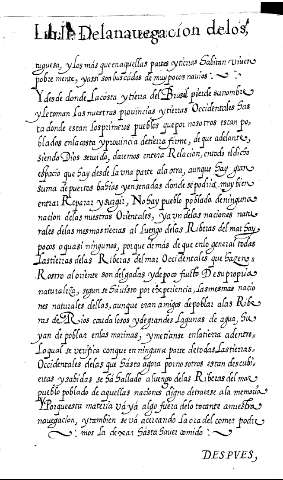 Lib. II. De la nauegacion de los,
tuguesa, y los mas que en aquellas partes y tierras habitan viuen
pobre mente, y assi son bastecidos de muy pocos nauios.
Y desde donde la costa y tierra del Brasil pierde su nombre
y le toman las nuestras prouincias y tierras Occidentales has
ta donde estan los primeros pueblos que por nosotros estan po
blados en la costa y prouincia de tierra firme, de que adelante,
siendo Dios seruido, daremos entera Relacion, en todo el dicho
espacio que hay desde la vna parte a la otra, aunque hay gran
suma de puertos bahias y ensenadas donde se podria muy bien
entrar Reparar y surgir, No hay pueblo poblado de ninguna
nacion de los nuestros Orientales, ya vn de las naciones natu
rales de las mesmas tierras al luengo de las Riberas del mar hay
pocos o quasi ningunos, porque demas de que en lo general todas
las tierras de las Riberas del mar Occidentales que hazen
Rostro al oriente son delgadas y de poco fruto De su propria
naturaleza, segun se ha visto por experiencia, las mesmas nacio
nes naturales dellas, aunque eran amigos de poblar a las Ribe
ras de Rios caudalosos y de grandes lagunas de agua, hu
yan de poblar en las marinas, y metianse en la tierra adentro
Lo qual se verifica con que en ninguna parte de todas las tierras
Occidentales de las que hasta agora por nosotros estan descubi
ertas y sabidas se ha hallado a luengo de las Riberas del mar
pueblo poblado de aquellas naciones digno de traerse a la memoria
Y porque esta materia va ya algo fuera de lo tocante a nuestra
nauegacion, y tambien se va acercando la ora del comer podre
mos la dexar hasta hauer comido
DESPVES,